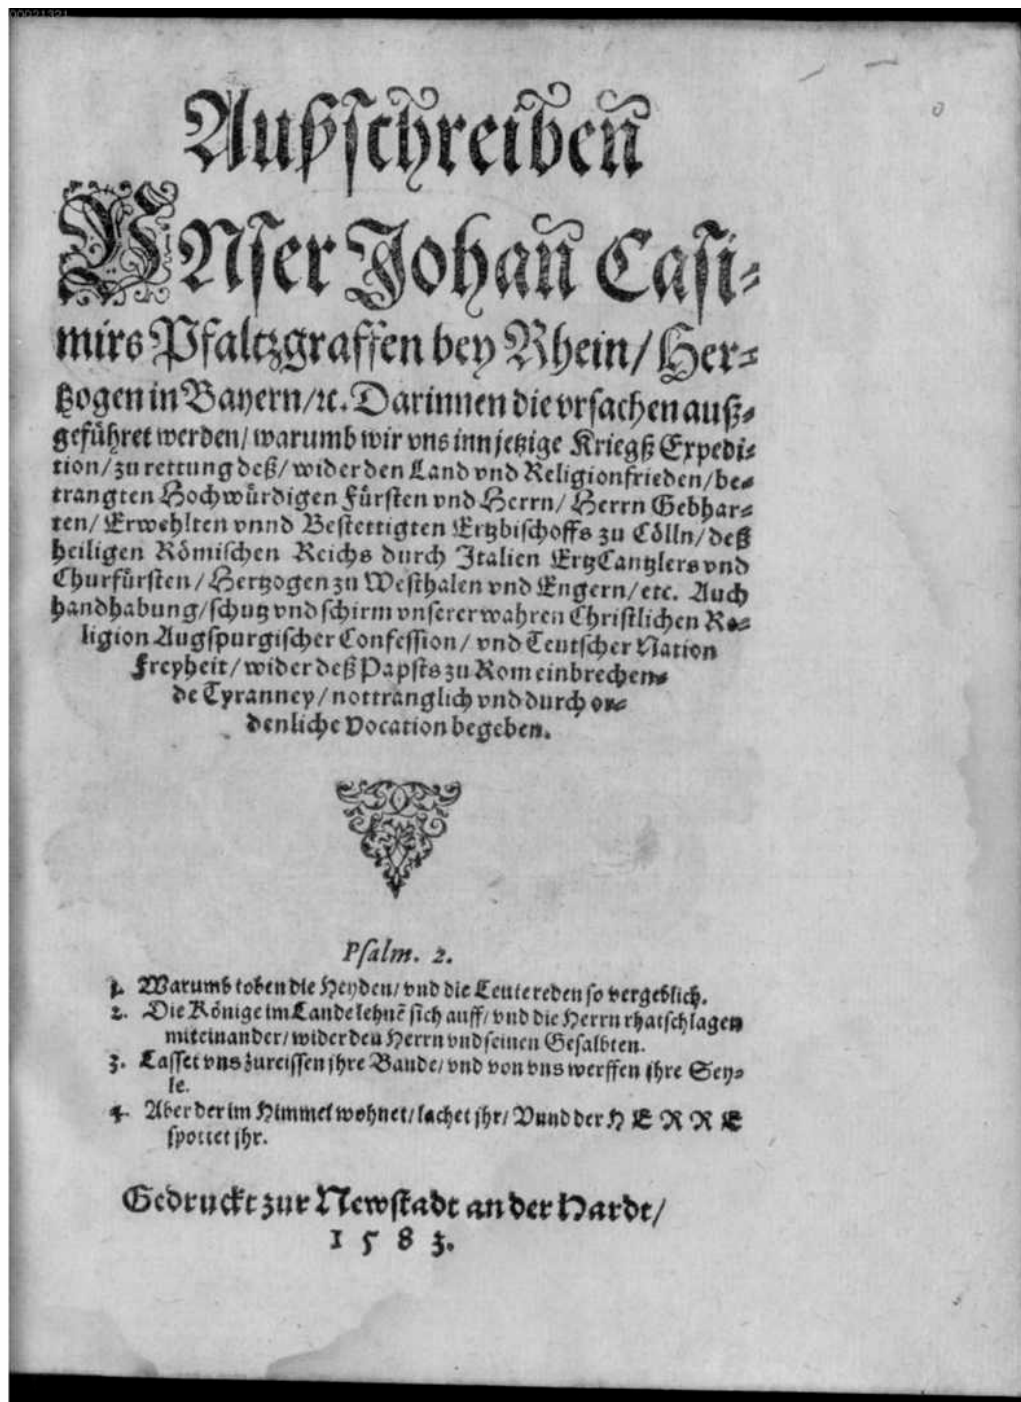 00021321
Außſchreibeñ
VNſer Johañ Caſi⸗
mirs Pfaltzgraffen bey Rhein/ Her⸗
tzogen in Bayern/ꝛc. Darinnen die vrſachen auß⸗
geführet werden/ warumb wir vns inn jetzige Kriegß Expedi⸗
tion/ zu rettung deß/ wider den Land vnd Religionfrieden/ be⸗
trangten Hochwürdigen Fürſten vnd Herrn/ Herrn Gebhar⸗
ten/ Erwehlten vnnd Beſtettigten Ertzbiſchoffs zu Cölln/ deß
heiligen Römiſchen Reichs durch Italien ErtzCantzlers vnd
Churfürſten/ Hertzogen zu Weſthalen vnd Engern/ etc. Auch
handhabung/ ſchutz vnd ſchirm vnſerer wahren Chriſtlichen Re⸗
ligion Augſpurgiſcher Confeſſion/ vnd Teutſcher Nation
Freyheit/ wider deß Papſts zu Rom einbrechen⸗
de Tyranney/ nottranglich vnd durch or⸗
denliche Vocation begeben.
Pſalm. 2.
1. Warumb toben die Heyden/ vnd die Leute reden ſo vergeblich.
2. Die Könige im Lande lehnẽ ſich auff/ vnd die Herrn rhatſchlagen
miteinander/ wider den Herrn vnd ſeinen Geſalbten.
3. Laſſet vns zureiſſen jhre Bande/ vnd von vns werffen jhre Sey⸗
le.
4. Aber der im Himmel wohnet/ lachet jhr/ Vnnd der HERRE
ſpottet jhr.
Gedruckt zur Newſtadt an der Hardt/
1583.